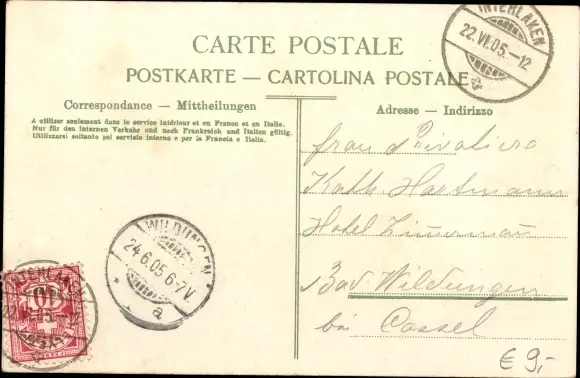 CARTE POSTALE
POSTKARTE — CARTOLINA POSTALE
Correspondance — Mittheilungen
A utiliser seulement dans le service intérieur et en France et en Italie.
Nur für den internen Verkehr und nach Frankreich und Italien gültig.
Utilizzarsi soltanto pel servizio interno e per la Francia e Italia.
Adresse — Indirizzo
INTERLAKEN
22.VI.05.-12
Frau Privatiere
Kath. Hartmann
Hotel Zimmermann
Bad Wildungen
bei Cassel
WILDUNGEN
24.6.05.6-7V.
* a
INTERLAKEN
22.VI.05.-12
10
€ 9,-